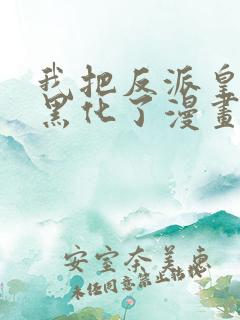 我把反派皇
黑化了漫畫
安室奈美惠
未经同意禁止转载